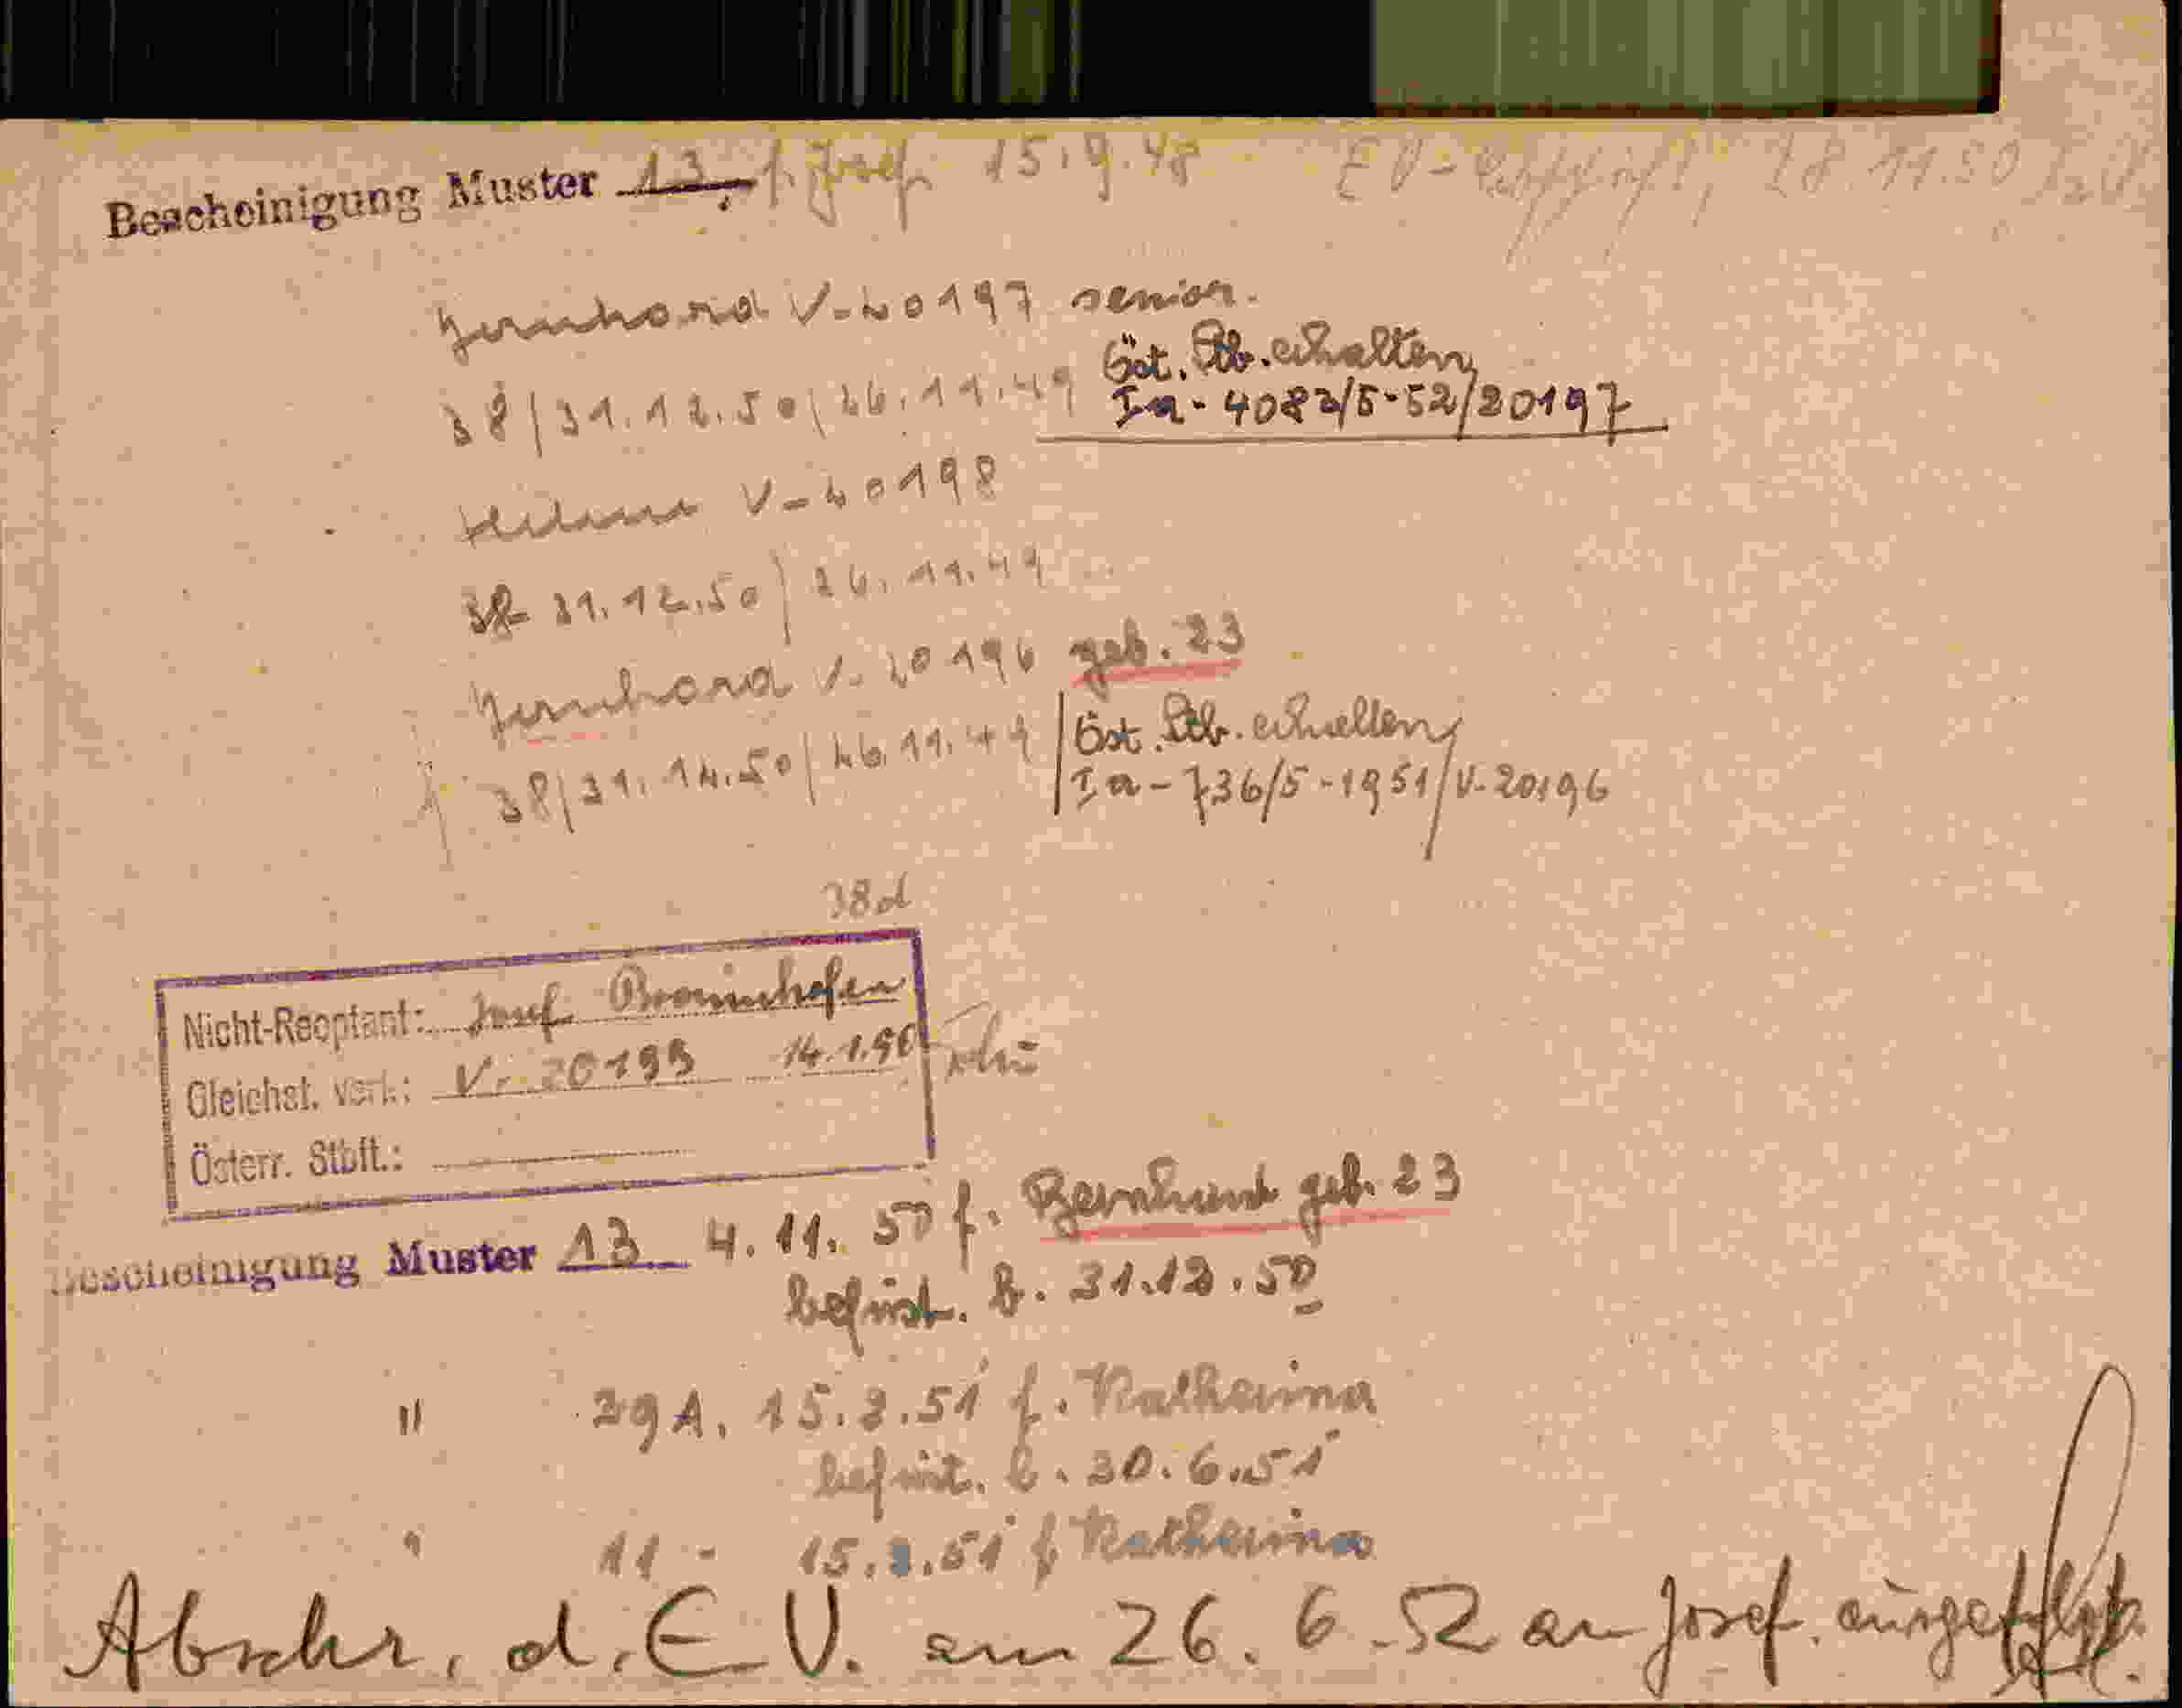 Bescheinigung Muster 13, f. Josef 15.9.48 EV- 28.11.50
Bernhard V-20197 senior.
38/31.12.50/26.11.49 Öst. Stb. erhalten
Ia-4082/5-52/20197
V-20198
38 31.12.50/26.11.49
Bernhard V-20196 geb. 23
38/31.12.50/26.11.49 Öst. Stb. erhalten
Ia-736/5-1951/V-20196
38d
Nicht-Reoptant: Josef
Gleichst. verl.: V- 14.1.50
Österr. Stbft.:
Bescheinigung Muster 13 4.11.50 f. Bernhard geb. 23
befrist. b. 31.12.50
" 39A, 15.3.51 f. Katharina
befrist. b. 30.6.51
" 11 - 15.3.51 f Katharina
Abschr. d. EV. am 26.6.52 an Josef ausgefolgt.